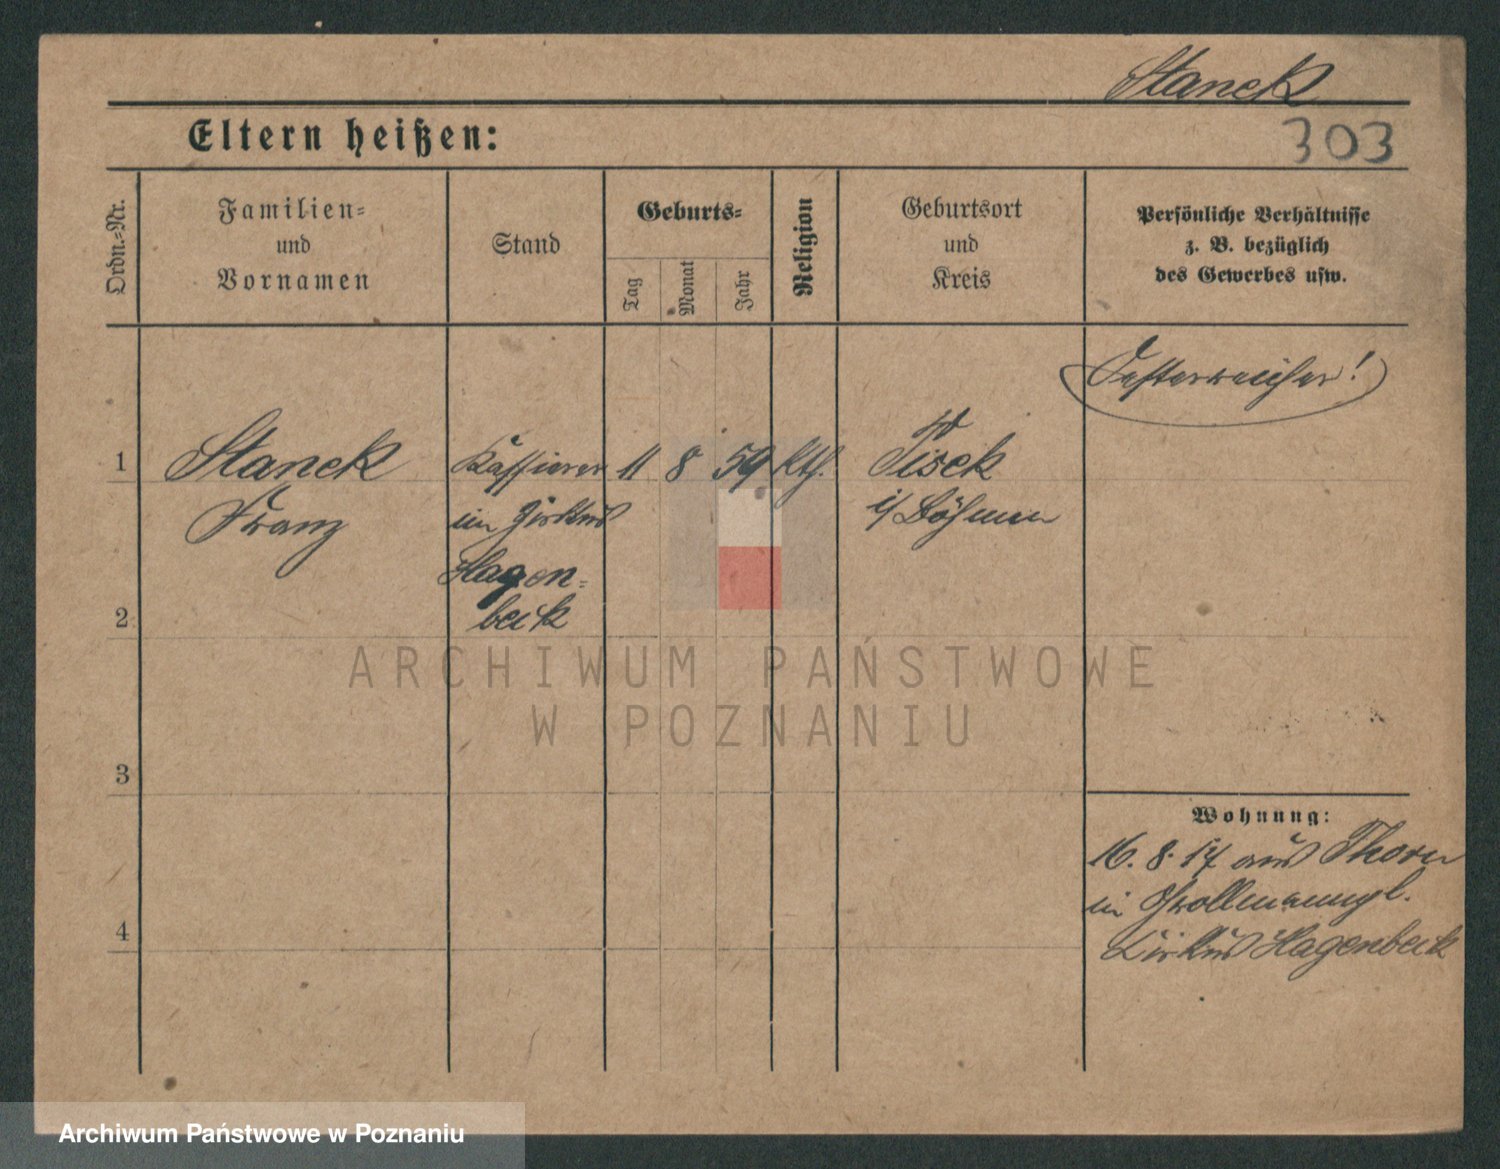 Stanek
Eltern heißen:
303
Ordn.-Nr.
Familien-
und
Vornamen
Stand
Geburts-
Tag
Monat
Jahr
Religion
Geburtsort
und
Kreis
Persönliche Verhältnisse
z. B. bezüglich
des Gewerbes usw.
Oesterreicher!
1 Stanek Kassierer 11 8 59 kth. Pisek
Franz im Zirkus i/Böhmen
Hagen-
beck
2
ARCHIWUM PAŃSTWOWE
W POZNANIU
3
Wohnung:
16. 8. 17 aus Thorn
in
4
Zirkus Hagenbeck
Archiwum Państwowe w Poznaniu